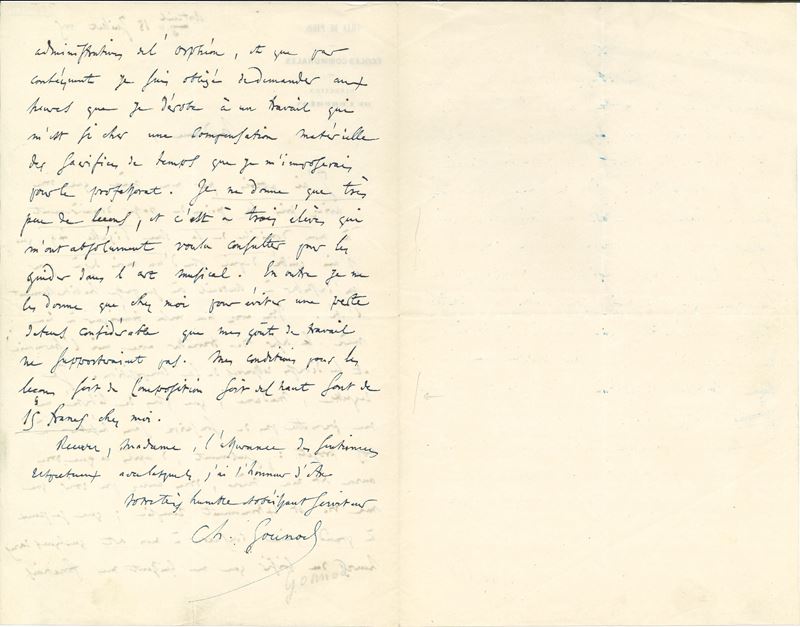 administration de l'Orphéon, et que par
conséquent je suis obligé de demander aux
heures que je dérobe à un travail qui
m'est si cher une compensation matérielle
des sacrifices de temps que je m'imposerais
pour le professorat. Je ne donne que très
peu de leçons, et c'est à trois élèves qui
m'ont absolument voulu consulter pour les
guider dans l'art musical. En outre je ne
les donne que chez moi pour éviter une perte
de tems considérable que mes goûts de travail
ne supporteraient pas. Mes conditions pour les
leçons soit de Composition soit de Chant sont de
15 francs chez moi.
Recevez, Madame, l'assurance des sentimens
respectueux avec lesquels j'ai l'honneur d'être
votre très humble et obéissant serviteur
Ch. Gounod
Gounod